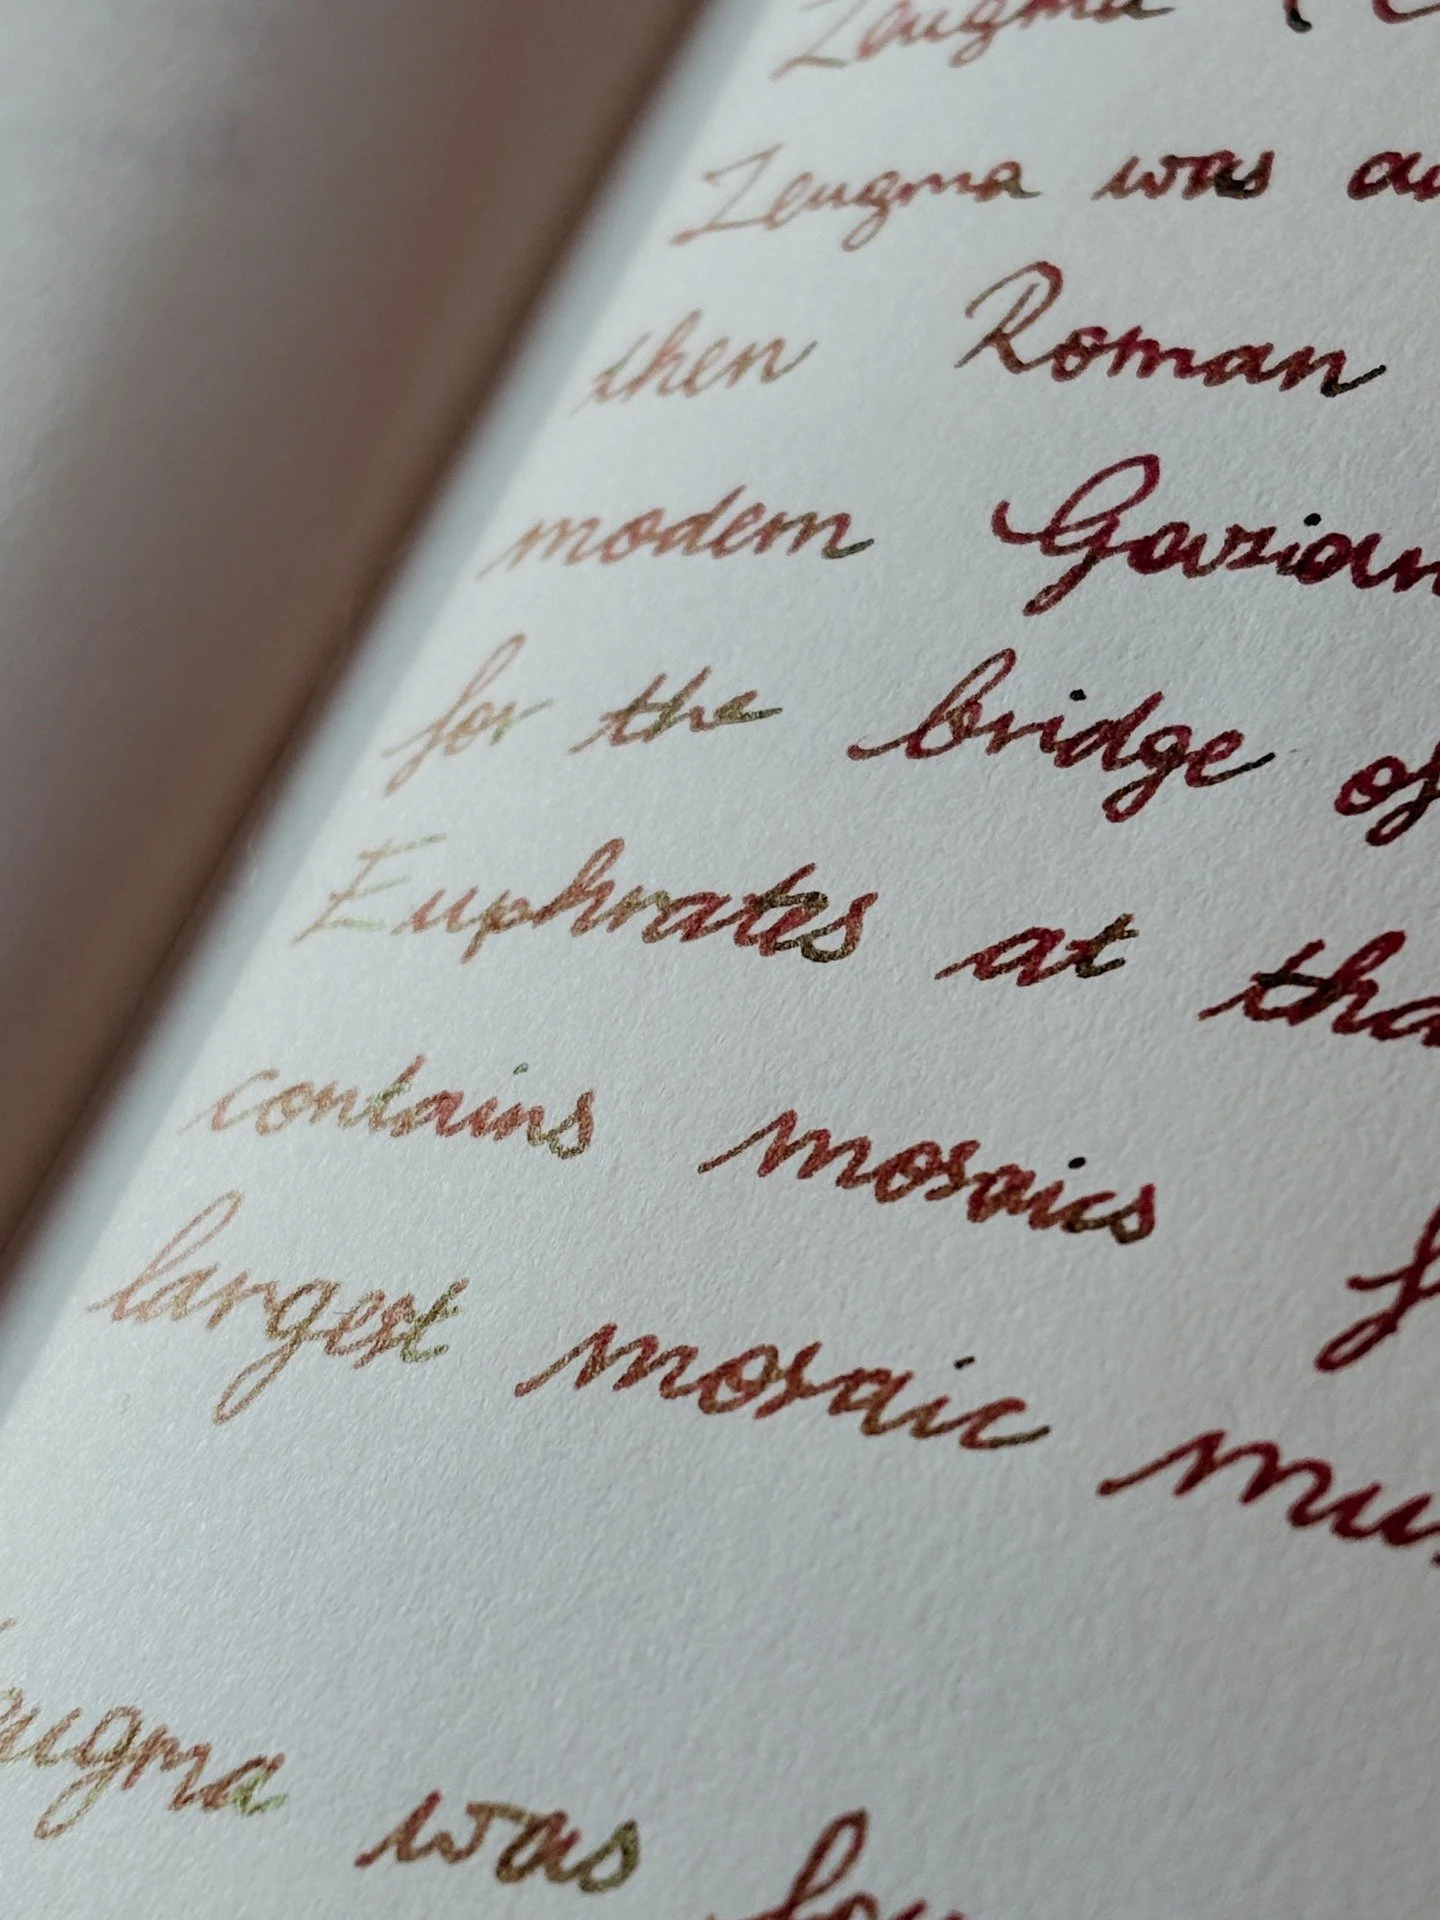 Zeugma (
Zeugma was
then Roman
modern
for the bridge of
Euphrates at
contains mosaics
largest mosaic
was